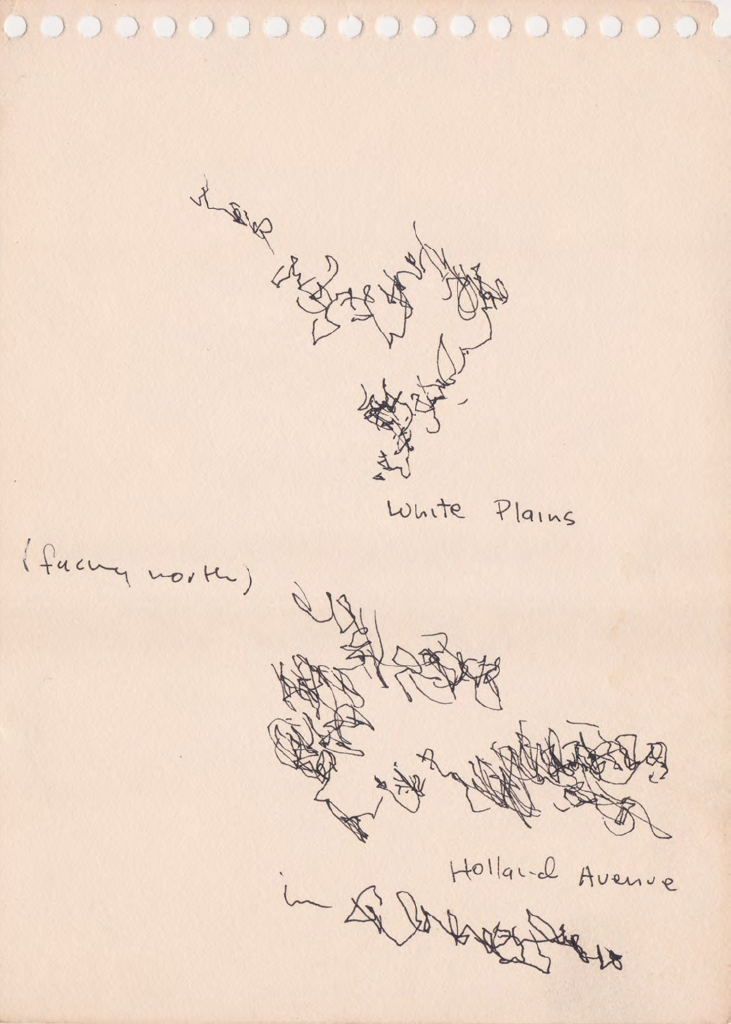 White Plains
(facing north)
Holland Avenue
in